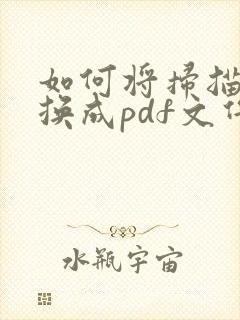 如何将扫描
换成pdf文
水瓶宇宙